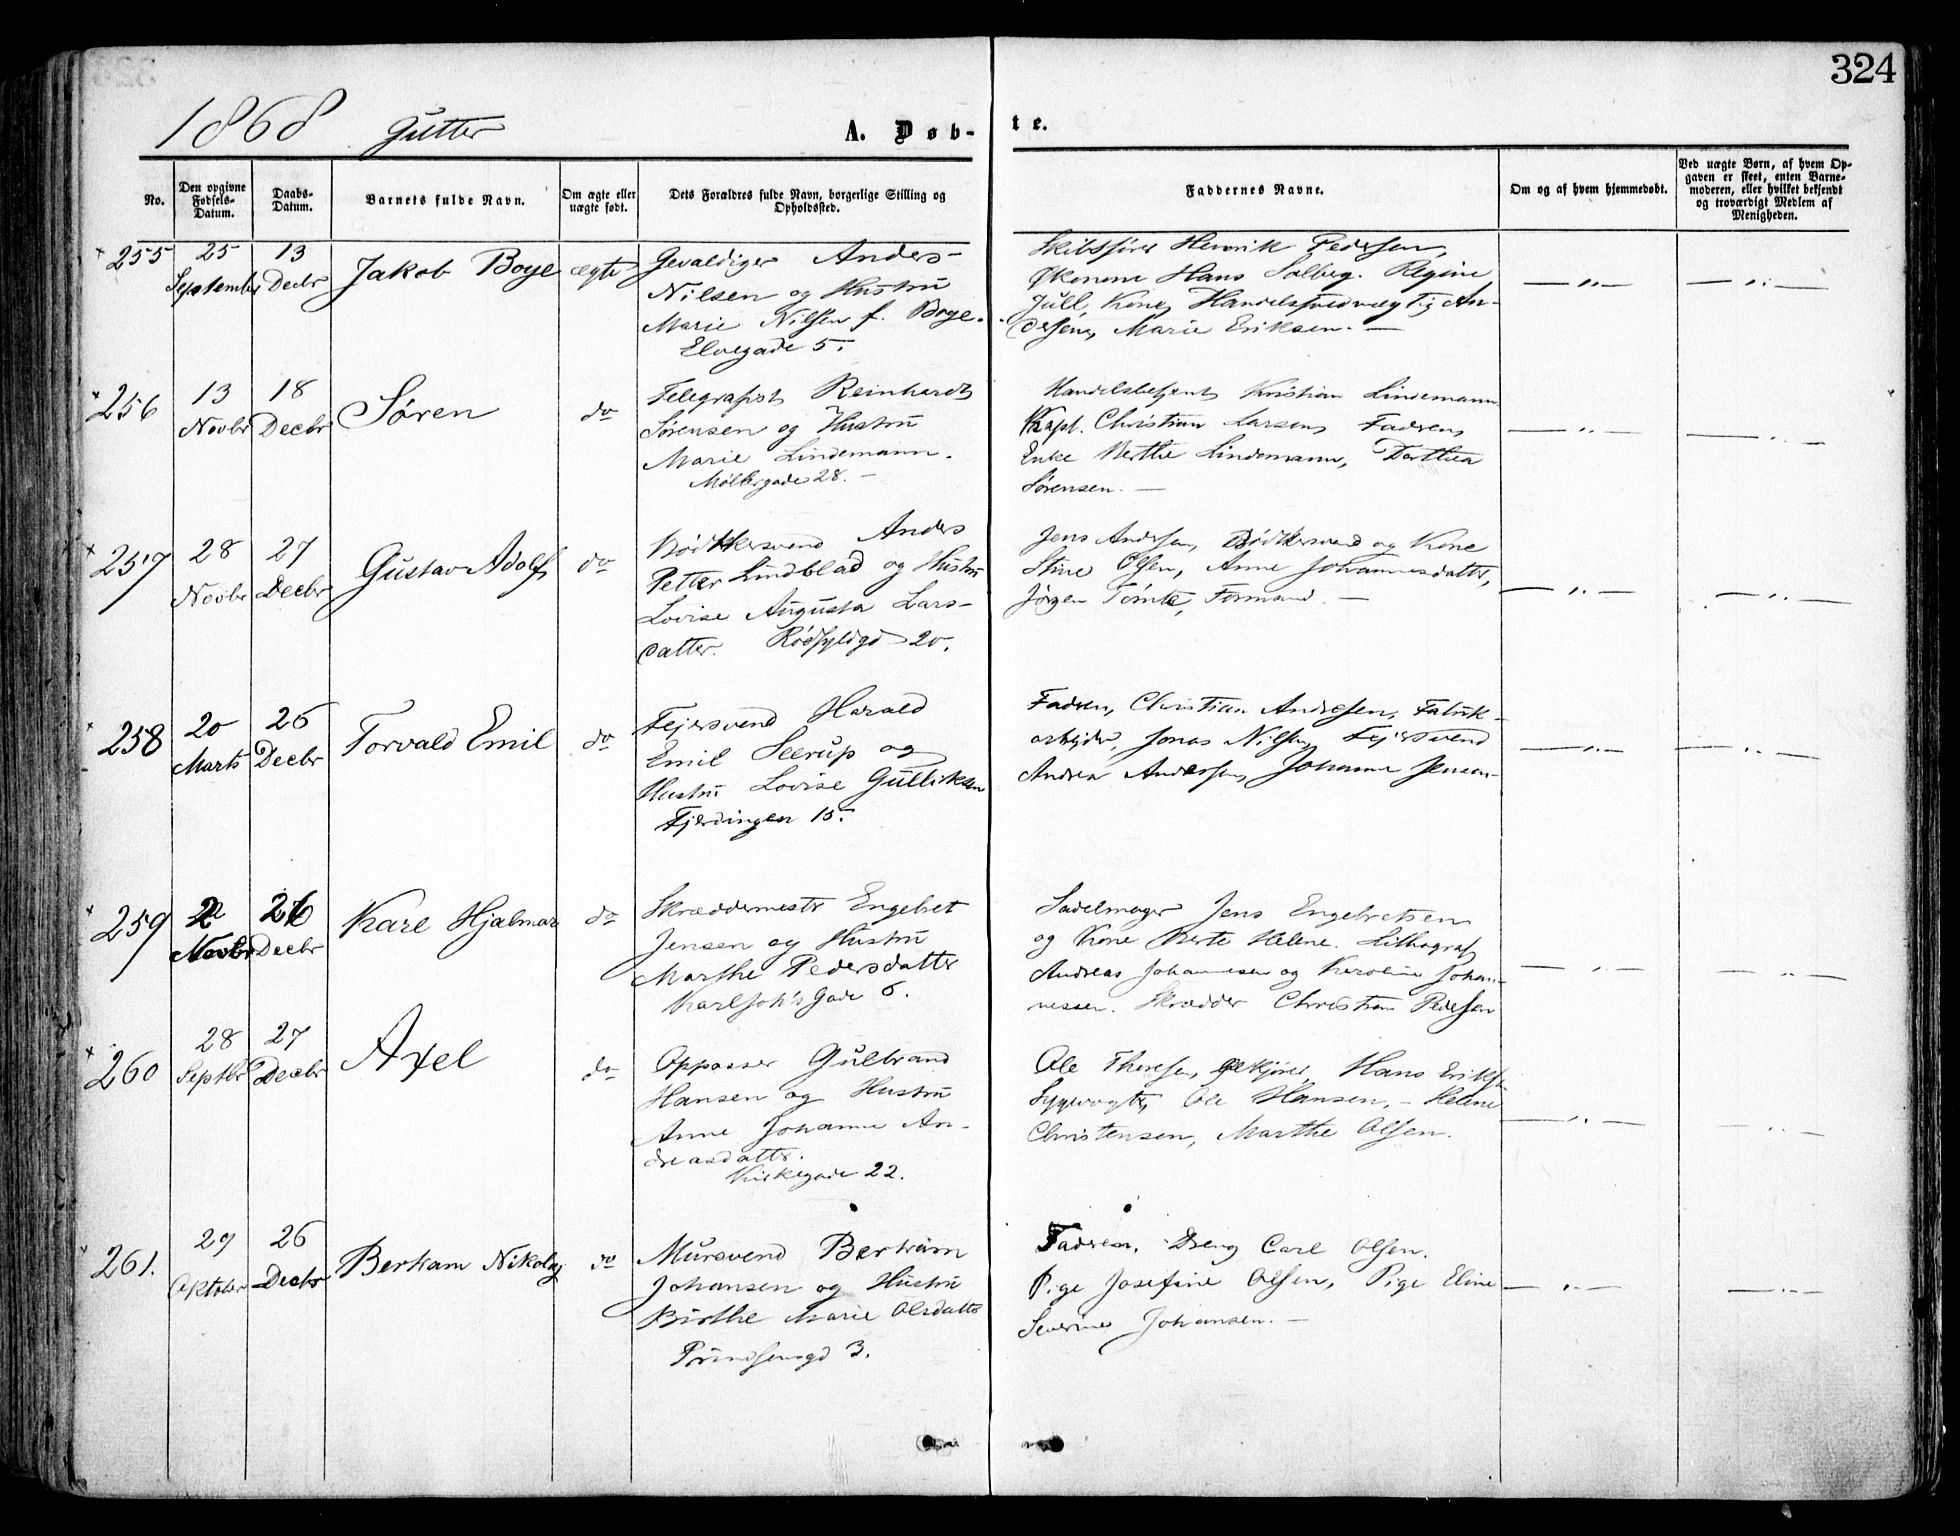 324
1868 Gutter
A. Døbte.
No.
Den opgivne Fødsels-Datum.
Daabs-Datum.
Barnets fulde Navn.
Om ægte eller uægte født.
Dets Forældres fulde Navn, borgerlige Stilling og Opholdssted.
Faddernes Navne.
Om og af hvem hjemmedøbt.
Ved uægte Børn, af hvem Opgaven er skeet, enten Barnemoderen, eller hvilket bekjendt og troværdigt Medlem af Menigheden.
255
25 September
13 Decbr
Jakob Boye
ægte
Gevaldiger Anders
Nilsen og Hustru
Marie Nilsen f. Boye.
Elvegade 5.
Skibsfører Henrik Pedersen,
Økonom Hans Solberg. Regine
Jull, Kone, Handelsfuldmægtig An-
dersen, Marie Eriksen. —
— „ —
— „ —
256
13 Novbr
18 Decbr
Søren
do
Telegrafist Reinhardt
Sørensen og Hustru
Marie Lindemann.
Møllergade 28. —
Handelsbetjent Kristian Lindemann
Kapt. Christian Larsen, Fadren,
Enke Berthe Lindemann, Dorthea
Sørensen. —
— „ —
— „ —
257
28 Novbr
27 Decbr
Gustav Adolf
do
Bødkersvend Anders
Petter Lindblad og Hustru
Lovise Augusta Lars-
datter. Rødfyldgd 20.
Jens Andersen, Bødkersvend og Kone
Stine Olsen, Anne Johannesdatter,
Jørgen Tømte, Formand. —
— „ —
— „ —
258
20 Marts
26 Decbr
Torvald Emil
do
Fejersvend Harald
Emil Seerup og
Hustru Lovise Gulliksen
Fjerdingen 15.
Fadren, Christian Andresen, Fabrik-
arbejder, Jonas Nilsen, Fejersvend
Andrea Andersen, Johanne Jensen
— „ —
— „ —
259
2 Novbr
26 Decbr
Kare Hjalmar
do
Skræddermestr Engebret
Jensen og Hustru
Marthe Pedersdatter
Karl Joh's Gade 6.
Sadelmager Jens Engebretsen
og Kone Berte Helene. Lithograf
Andreas Johannesen og Karoline Johan-
nessen. Skrædder Christian Pedersen
— „ —
— „ —
260
28 Septbr
27 Decbr
Axel
do
Oppasser Gulbrand
Hansen og Hustru
Anne Johanne An-
dreasdatter.
Kirkegade 22.
Ole Thoresen, Hans Eriksen
Sygevogter, Ole Hansen, - Helene
Christensen, Marthe Olsen.
— „ —
— „ —
261.
29 Oktober
26 Decbr
Bertram Nikolay
do
Mursvend Bertram
Johansen og Hustru
Birthe Marie Olsdatter
Prindsensgd 3.
Fadren. Dreng Carl Olsen.
Pige Josefine Olsen, Pige Eline
Severine Johansen. —
— „ —
— „ —